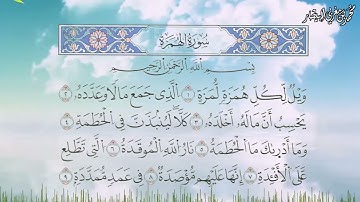 سُورَةُ الهُمَزَةِ
بِسْمِ اللَّهِ الرَّحْمَٰنِ الرَّحِيمِ
وَيْلٌ لِّكُلِّ هُمَزَةٍ لُّمَزَةٍ ١ الَّذِي جَمَعَ مَالًا وَعَدَّدَهُ ٢
يَحْسَبُ أَنَّ مَالَهُ أَخْلَدَهُ ٣ كَلَّا لَيُنۢبَذَنَّ فِي الْحُطَمَةِ ٤
وَمَا أَدْرَىٰكَ مَا الْحُطَمَةُ ٥ نَارُ اللَّهِ الْمُوقَدَةُ ٦ الَّتِي تَطَّلِعُ
عَلَى الْأَفْـِٔدَةِ ٧ إِنَّهَا عَلَيْهِم مُّؤْصَدَةٌ ٨ فِي عَمَدٍ مُّمَدَّدَةٍ ٩